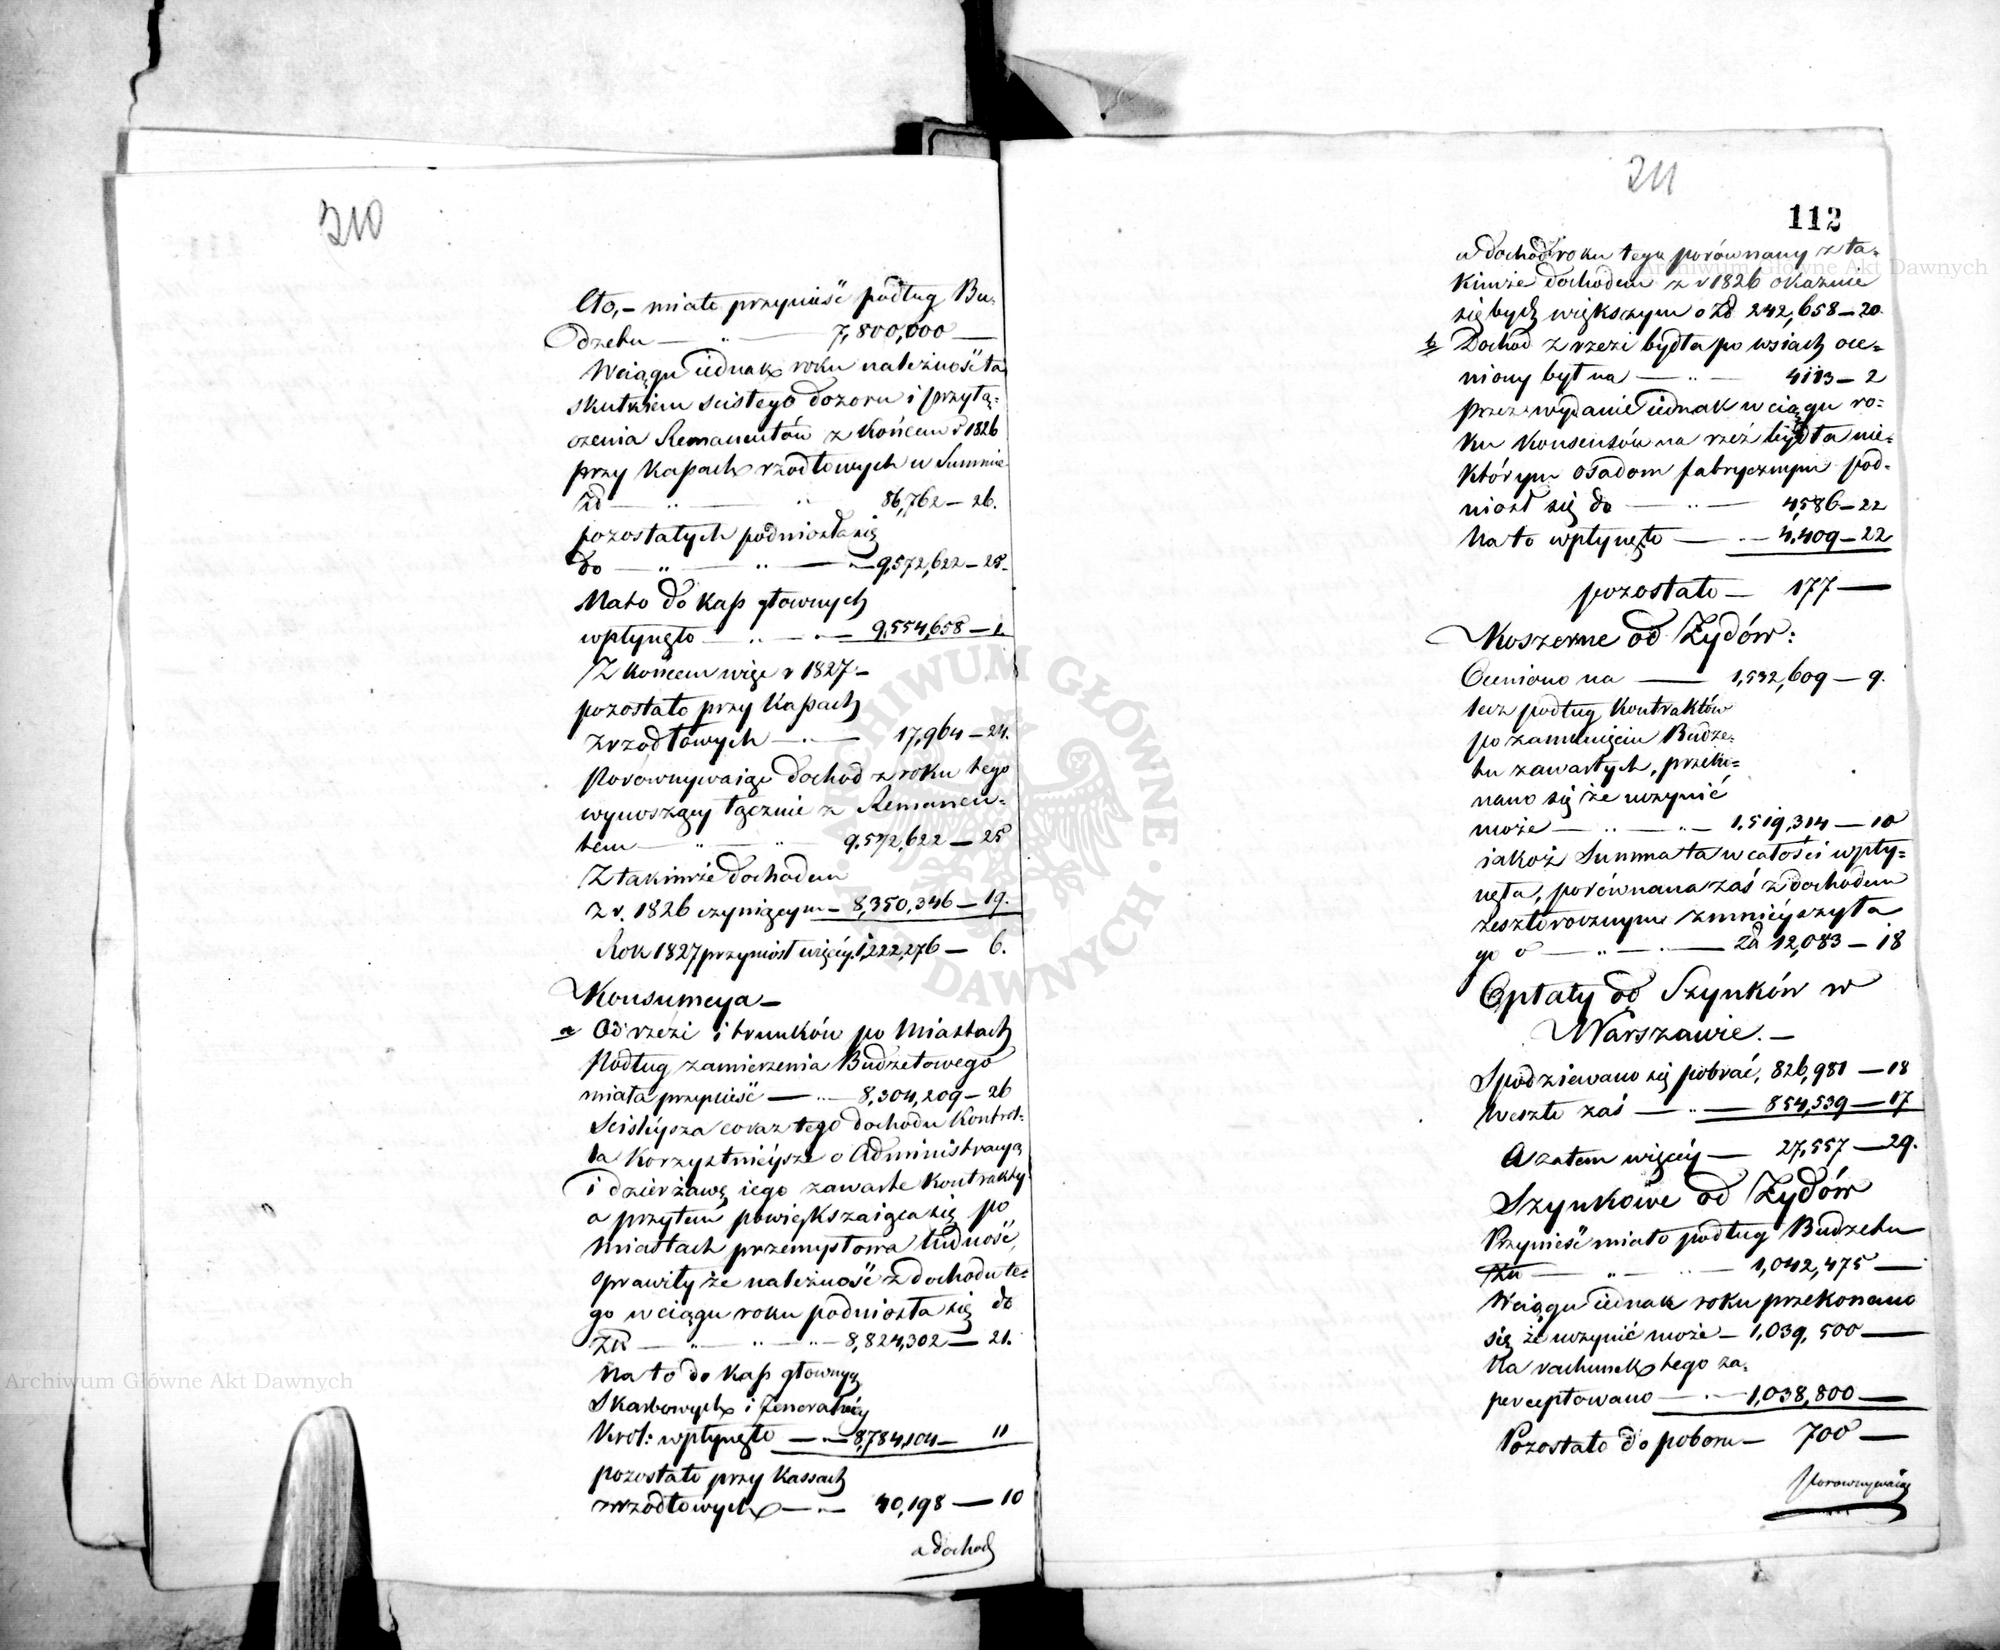 210
Cto, – miało przynieść podług Bu-
dżetu — „ — 7,800,000 —
W ciągu iednak roku należność ta
skutkiem scisłego dozoru i przyłą-
czenia Remanentów z Końcem r 1826
przy Kaßach rzodłowych w Summie
Zł — „ — „ 86,762 – 26.
pozostałych podniosła się
do — „ — „ — 9,572,622 – 25.
Na to do kaß głownych
wpłynęło — „ — „ — 9,554,658 – 1.
Z końcem więc r 1827 –
pozostało przy Kaßach
zrzodłowych — „ — 17,964 – 24.
Porównywaiąc dochod z roku tego
wynoszący łącznie z Remanen-
tem — „ — „ 9,572,622 – 25
Z takimże dochodem
z r. 1826 czyniącym – 8,350,346 – 19.
Rok 1827 przyniosł więcéy 1,222,276 – 6.
Konsumcya –
a Od rzezi i trunków po Miastach
Podług zamierzenia Budżetowego
miała przynieść — „ — 8,304,209 – 26
Scisleysza coraz tego dochodu Kontrol-
la Korzystnieysze o Administracyą
i dzierżawę iego zawarte Kontrakty
a przytem powiększaiąca się po
Miastach przemysłowa ludność,
sprawiły że należność z dochodu te-
go w ciągu roku podniosła się do
Zł — „ — „ — „ – 8,824,302 — 21.
Na to do kaß głownych
Skarbowych i Jeneralnéy
Król: wpłynęło — „ — 8,784,104 – 11
pozostało przy Kassach
zrzodłowych — „ — 40,198 — 10
a dochod
211
112
a dochod roku tego porównany z ta-
kimże dochodem z r 1826 okazuie
się bydź większym o Zł 242,658 – 20.
b Dochod z rzezi bydła po wsiach oce-
niony był na — „ — 4113 – 2
przez wydanie iednak w ciągu ro-
ku Konsensów na rzeź bydła nie-
którym osadom fabrycznym pod-
niosł się do — „ — 4,586 – 22
Na to wpłynęło — „ — 4,409 – 22
pozostało — 177 —
Koszerne od Żydów:
Oceniono na — 1,532,609 — 9.
lecz podług Kontraktów
po zamknięciu Budże-
tu zawartych, przeko-
nano się że uczynić
może — „ — „ – 1,519,314 — 10
iakoż Summa ta w całości wpły-
nęła, porównana zaś z dochodem
zeszłorocznym zmnieyszyła
go o — „ — „ — Zł 12,083 – 18
Opłaty od Szynków w
Warszawie. –
Spodziewano się pobrać, 826,981 — 18
Weszło zaś — „ — 854,539 — 17
A zatem więcéy — 27,557 — 29.
Szynkowe od Żydów
Przynieść miało podług Budżetu
Zł — „ — „ — 1,042,475 —
W ciągu iednak roku przekonano
się że uczynić może – 1,039,500 —
Na rachunek tego za-
perceptowano — „ — 1,038,800 —
Pozostało do poboru – 700 —
Porownywaiąc
Archiwum Główne Akt Dawnych
Archiwum Główne Akt Dawnych
ARCHIWUM GŁÓWNE · AKT DAWNYCH ·